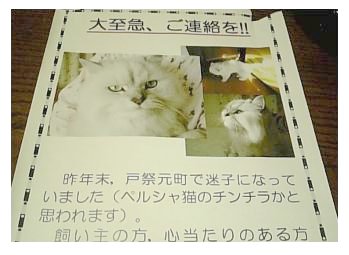 大至急、ご連絡を!!
昨年末，戸祭元町で迷子になって
いました（ペルシャ猫のチンチラかと
思われます）。
飼い主の方，心当たりのある方